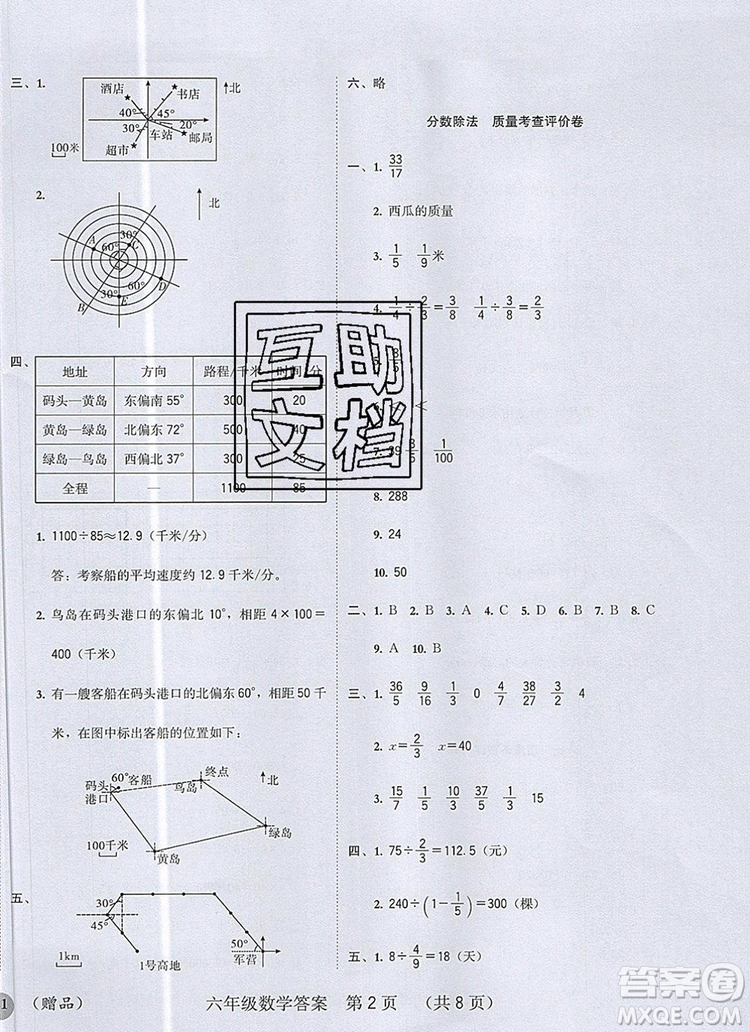 三、1.
酒店
书店
北
40°
45°
20°
30°
车站
邮局
超市
100米
2.
北
A
30°
C
60°
60°
D
30°
E
B
四、
地址 方向 路程/千米 时间/分
码头—黄岛 东偏南 55° 300 20
黄岛—绿岛 北偏东 72° 500 40
绿岛—鸟岛 西偏北 37° 300 25
全程 — 1100 85
1. 1100÷85≈12.9（千米/分）
答：考察船的平均速度约 12.9 千米/分。
2. 鸟岛在码头港口的东偏北 10°，相距 4×100＝
400（千米）
3. 有一艘客船在码头港口的北偏东60°，相距 50 千
米，在图中标出客船的位置如下：
60°
客船
终点
北
码头
港口
鸟岛
绿岛
100千米
黄岛
五、
30°
45°
50°
1km
1号高地
军营
六、略
分数除法 质量考查评价卷
一、1. 33/17
2. 西瓜的质量
3. 1/5 1/9米
4. 1/4÷2/3=3/8 1/9÷1/6=2/3
5.
8. 288
9. 24
10. 50
二、1. B 2. B 3. B 4. C 5. B 6. B 7. B 8. C
9. A 10. B
三、1. 36/5 4/9 1/3 0 4/7 38/27 3/2 4
2. x=2/3 x=40
3. 15/7 1/4 15/4 1/3 15
四、1. 75÷2/3=112.5（元）
2. 240÷(1-1/5)=300（棵）
五、1. 8÷4/9=18（天）
1
（赠品） 六年级数学答案 第2页 （共8页）
互助
文档
答案圈
MXQE.COM